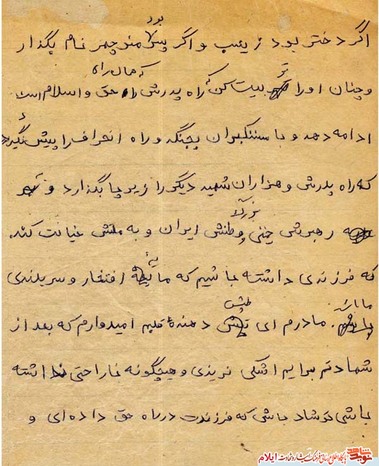 بود
اگر دختر بود زینب و اگر پسر منوچهر نام بگذار
و چنان او را تربیت کن که راه پدرش که همان راه حق و اسلام است
ادامه دهد و با ستمگران بجنگد و راه انحراف را پیش نگیرد
که راه پدرش و هزاران شهید دیگر را زیر پا بگذارد و
به رهبرش خمینی بزرگ و وطنش ایران و به ملتش خیانت کند.
که فرزندی داشته باشیم که مایهٔ افتخار و سربلندی
ما باشد. مادرم ای طپش دهندهٔ قلبم امیدوارم که بعد از
شهادتم برایم اشکی نریزی و هیچگونه ناراحتی نداشته
باشی و شاد باشی که فرزندت در راه حق داده‌ای و
نوید شاهد ایلام